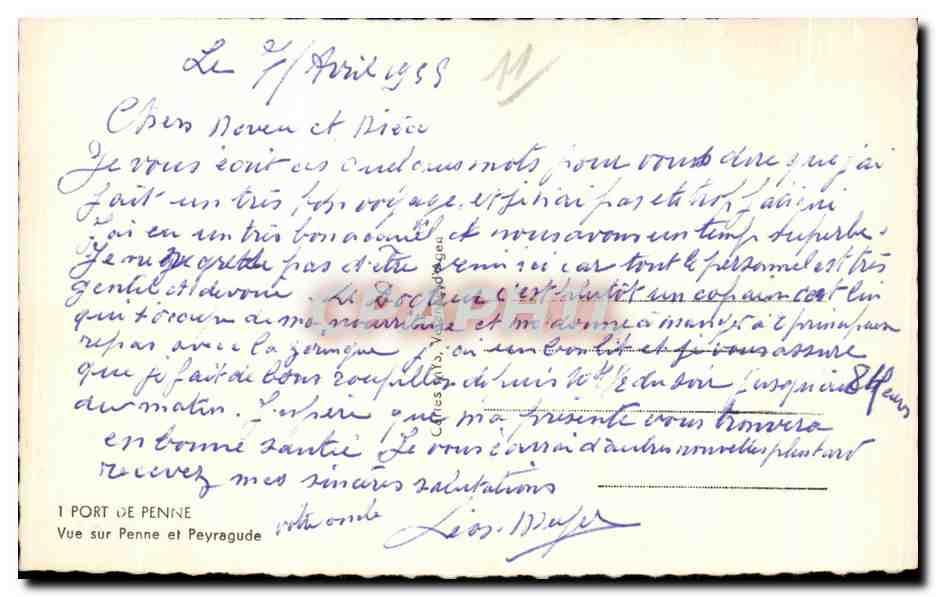 Le 7/Avril 1955
11
Chers Neveu et Nièce
Je vous écrit ces quelques mots pour vous dire que j'ai
fait un très bon voyage et je n'ai pas été trop fatigué
J'ai eu un très bon acceuil et nous avons un temp superbe.
Je ne regrette pas d'être venu ici car tout le personnel est très
gentil et dévoué. Le Docteur c'est plutôt un copain c'est lui
qui s'occupe de ma nourriture et me donne à mangé à principaux
repas avec la zeringue j'ai un bon lit et je vous assure
que je fait de bons roupillon depuis 10H 1/2 du soir jusqu'au 8 Heures
du matin. J'espère que ma présente vous trouvera
en bonne santié Je vous écrirai d'autres nouvelles plus tard
recevez mes sincères salutations
votre oncle Léon
1 PORT DE PENNE
Vue sur Penne et Peyragude
CPAPHIL